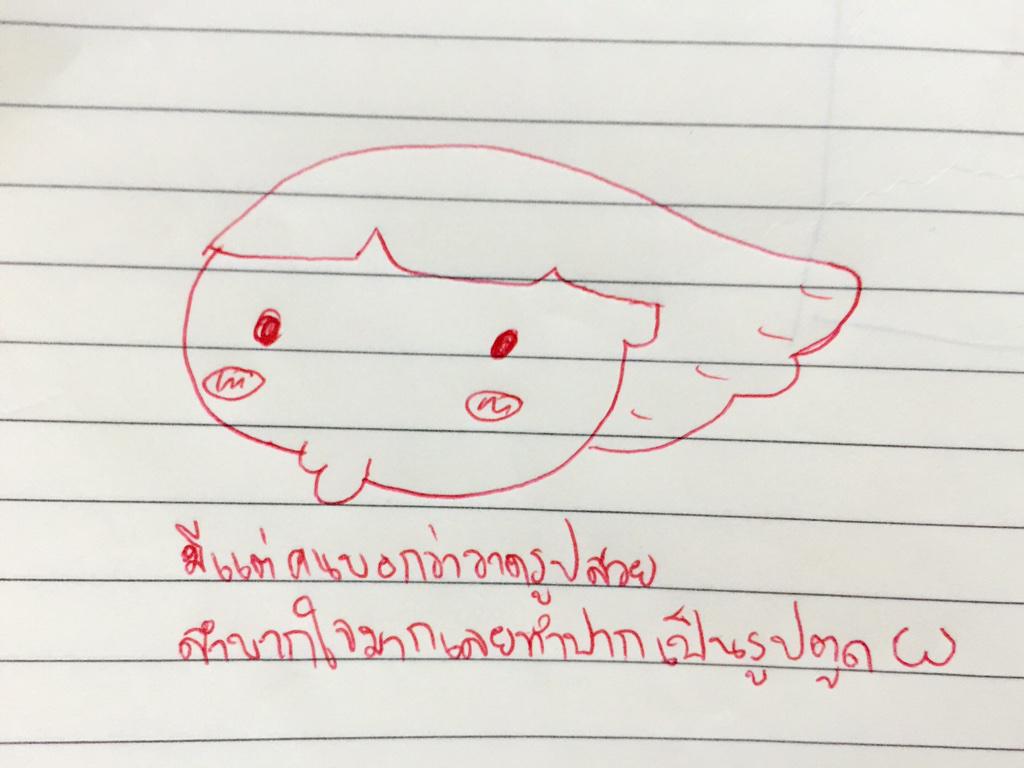 มีแต่คนบอกว่าวาดรูปสวย
ลำบากใจมากเลยทำปากเป็นรูปตูด ω